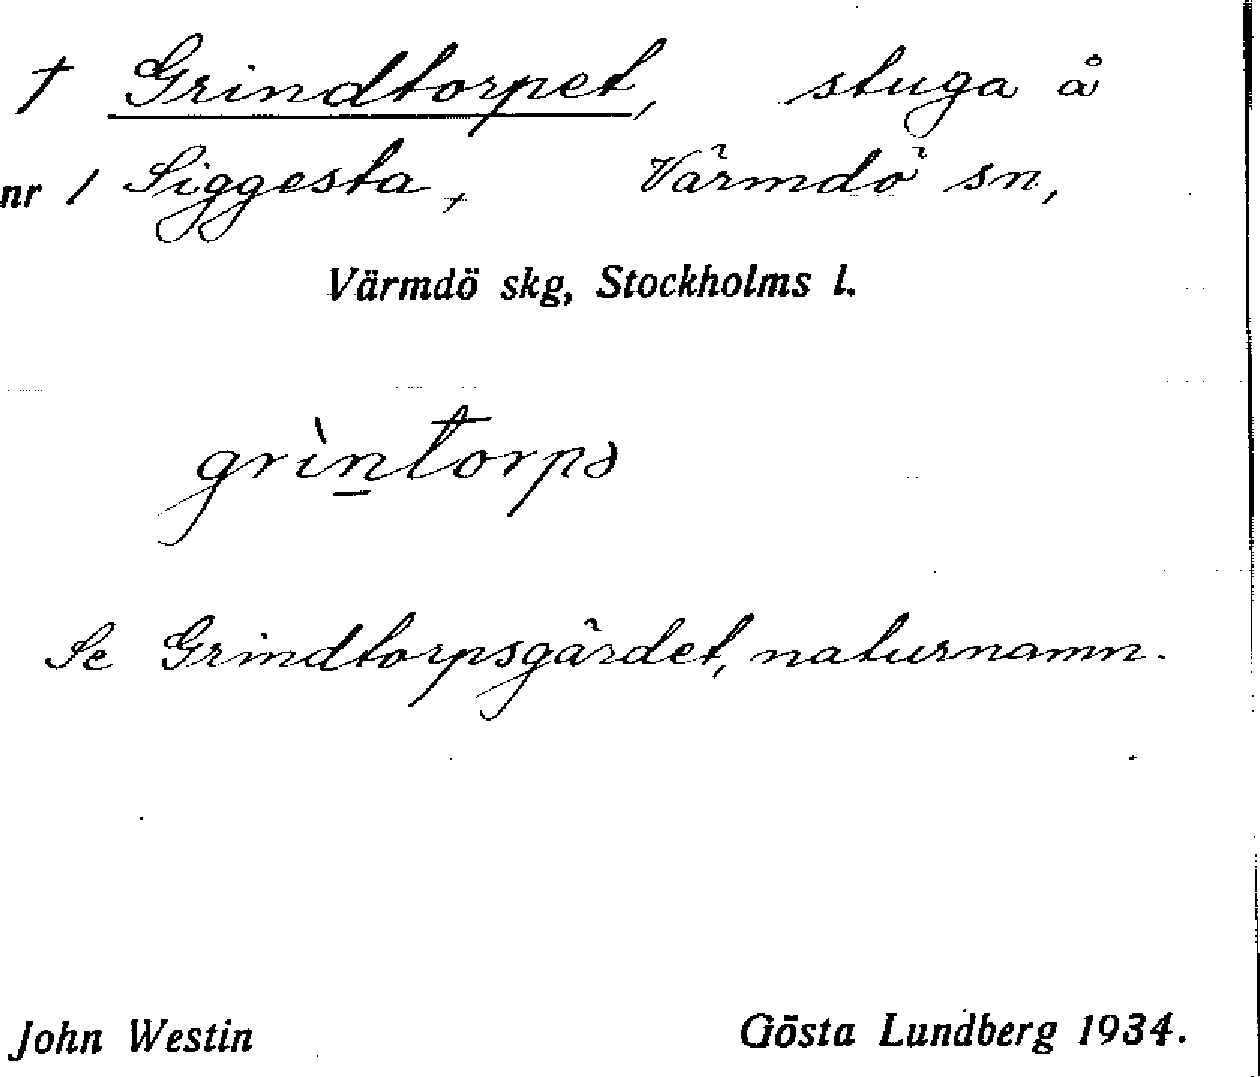 † Grindtorpet, stuga å
nr 1 Siggesta, Värmdö sn,
Värmdö skg, Stockholms l.
grìn̲torpə
Se Grindtorpsgärdet, naturnamn.
John Westin Gösta Lundberg 1934.